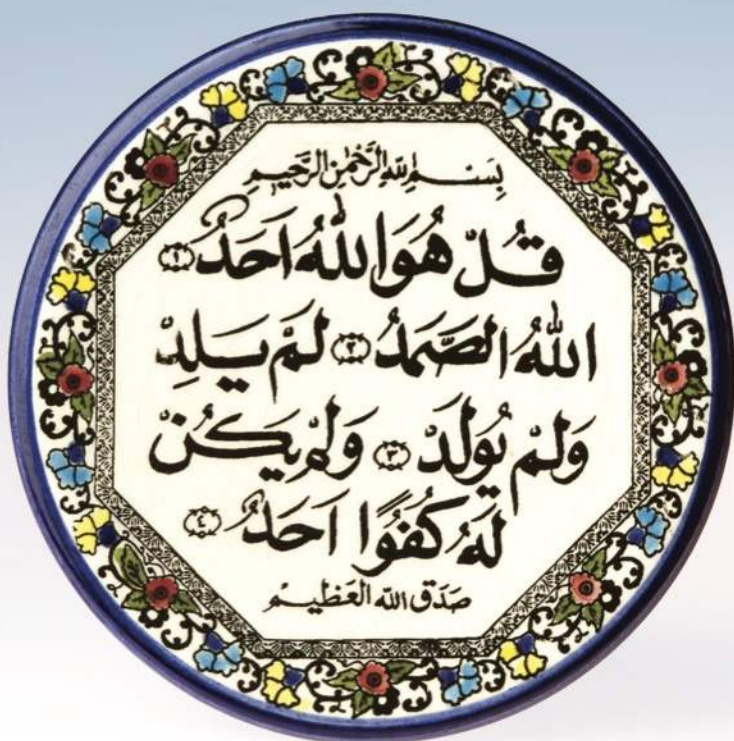 بِسْمِ اللهِ الرَّحْمٰنِ الرَّحِيمِ
قُلْ هُوَ اللهُ اَحَدٌ ۝١
اللهُ الصَّمَدُ ۝٢ لَمْ يَلِدْ
وَلَمْ يُولَدْ ۝٣ وَلَمْ يَكُنْ
لَهُ كُفُوًا اَحَدٌ ۝٤
صَدَقَ الله العَظِيم